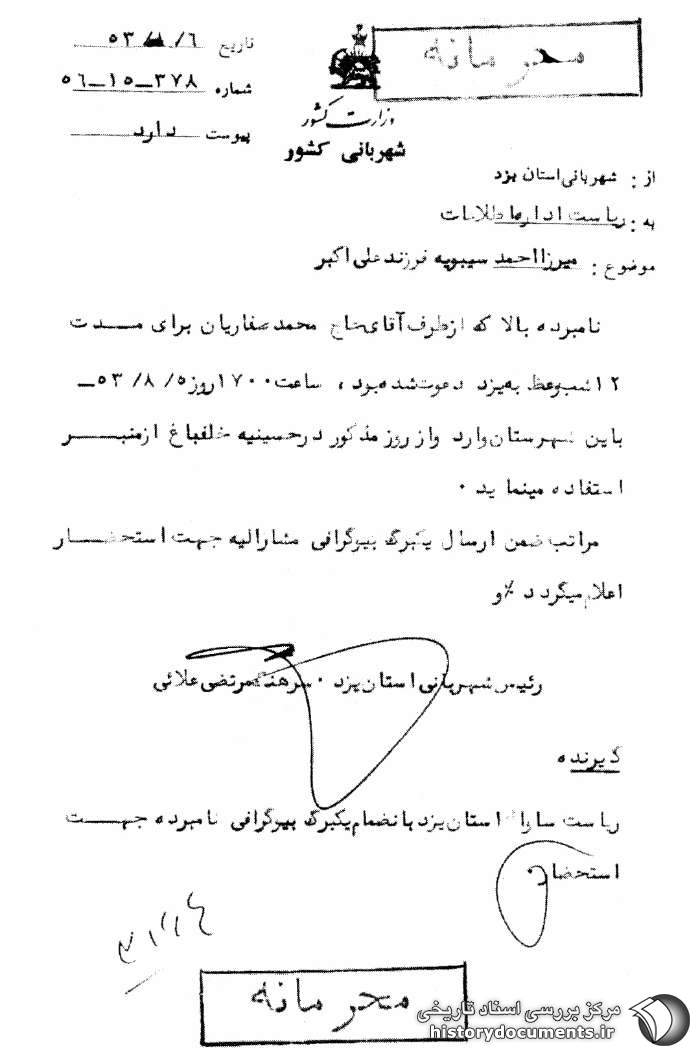 محرمانه
تاریخ ۵۳/۸/۶
شماره ۵۶ــ۱۵ــ۳۷۸
پیوست دارد
وزارت کشور
شهربانی کشور
از : شهربانی استان یزد
به : ریاست اداره اطلاعات
موضوع : میرزا احمد سیبویه فرزند علی اکبر
نامبرده بالا که از طرف آقای حاج محمد صفاریان برای مــدت
۱۲ شب وعظ به یزد دعوت شده بود ، ساعت ۱۷۰۰ روز ۵/ ۸/ ۵۳ــ
باین شهرستان وارد و از روز مذکور در حسینیه خلفباغ از منبــر
استفاده مینماید ۰
مراتب ضمن ارسال یکبرگ بیوگرافی مشارالیه جهت استحضــار
اعلام میگردد ٪و
رئیس شهربانی استان یزد ۰ سرهنگ مرتضی علائی
گیرنده
ریاست ساواک استان یزد بانضمام یکبرگ بیوگرافی نامبرده جهــت
استحضار
محرمانه
مرکز بررسی اسناد تاریخی
historydocuments.ir